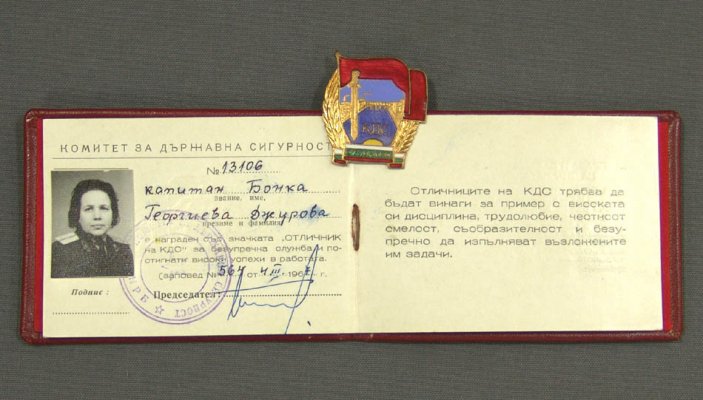 КОМИТЕТ ЗА ДЪРЖАВНА СИГУРНОСТ
№ 13106
капитан Бонка
звание, име,
Георгиева Джурова
презиме и фамилия
е награден със значката „ОТЛИЧНИК
НА КДС" за безупречна служба и по-
стигнати високи успехи в работата.
(заповед № 564 от 4 III г.
Подпис:
Председател:
СИГУРНОСТ
НРБ
КДС
Отличниците на КДС трябва да
бъдат винаги за пример с високата
си дисциплина, трудолюбие, честност
смелост, съобразителност и безу-
пречно да изпълняват възложените
им задачи.